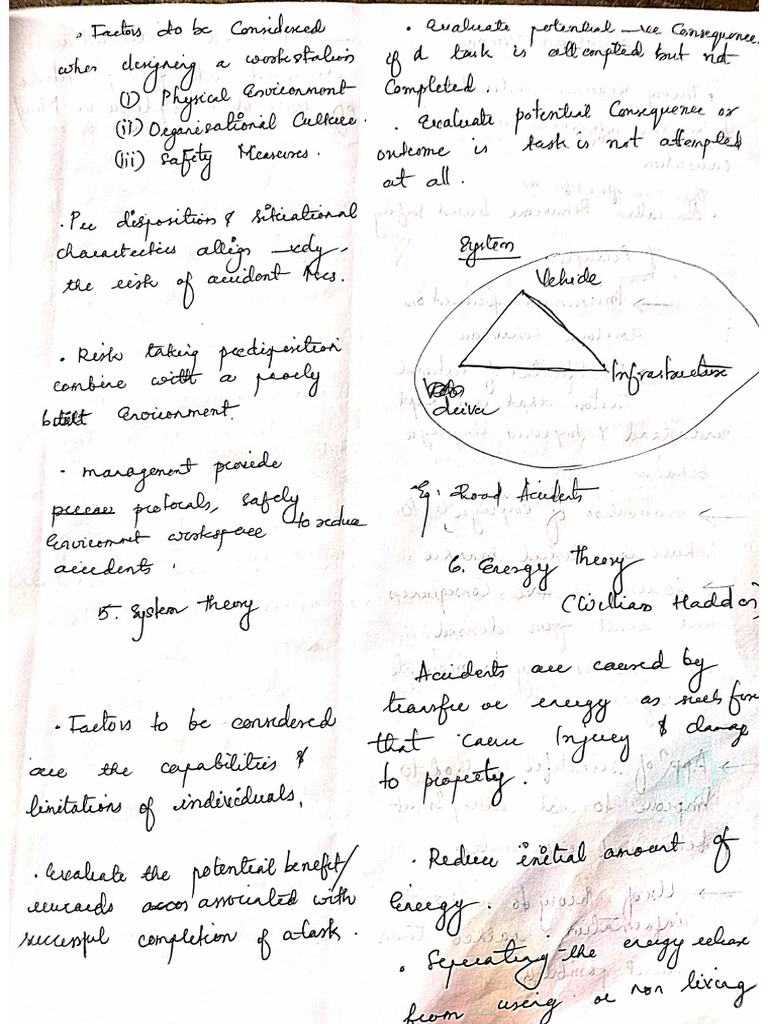 . Factors to be Considered
when designing a workstation
(i) Physical Environment
(ii) Organisational Culture.
(iii) Safety Measures.
. Pre disposition & situational
characteristics allign
the risk of accident
. Risk taking predisposition
combine with a poorly
built Environment.
. management provide
protocals, safely
Enviroment workspace to reduce
accidents.
5. System theory
. Factors to be considered
are the capabilities &
limitations of individuals.
. Evaluate the potential benefit/
rewards associated with
successful completion of a task.
. Evaluate potential -ve Consequence
if a task is attempted but not
Completed.
. Evaluate potential Consequence or
outcome is task is not attempted
at all.
System
Vehicle
Infrastructure
driver
Eg: Road Accidents
6. Energy theory
(William Haddon)
Accidents are caused by
transfer or energy as such
that cause Injury & damage
to property.
. Reduce initial amount of
Energy.
. Seperating the energy release
from using or non living